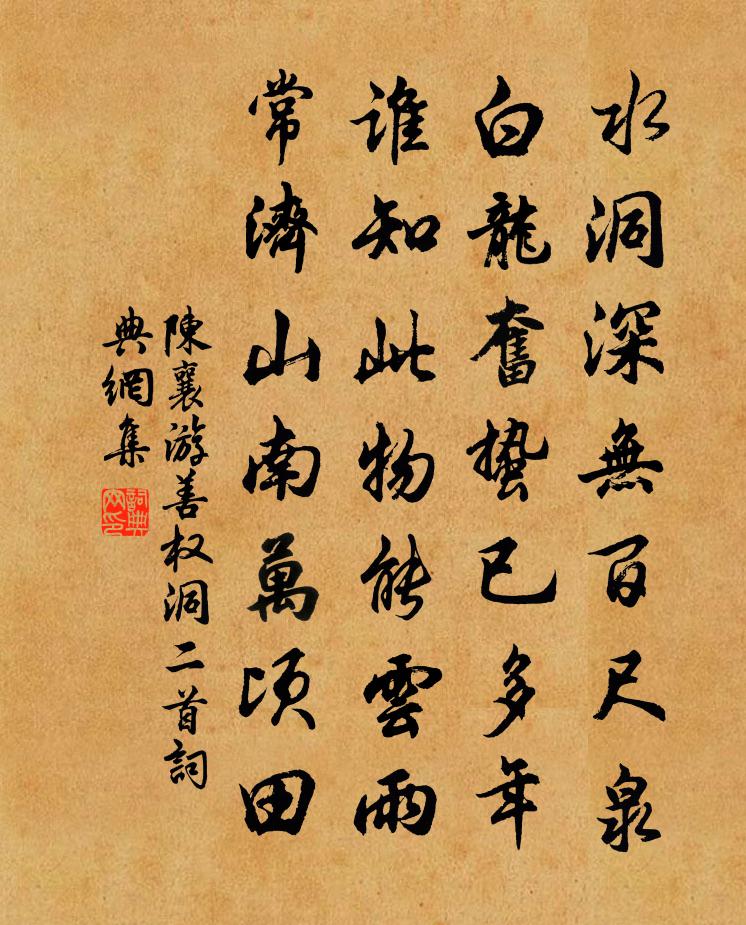 水洞深無百尺泉
白龍奮蟄已多年
誰知此物能雲雨
常濟山南萬頃田
陳襄游善权洞二首詞
典網集
詞典
网印